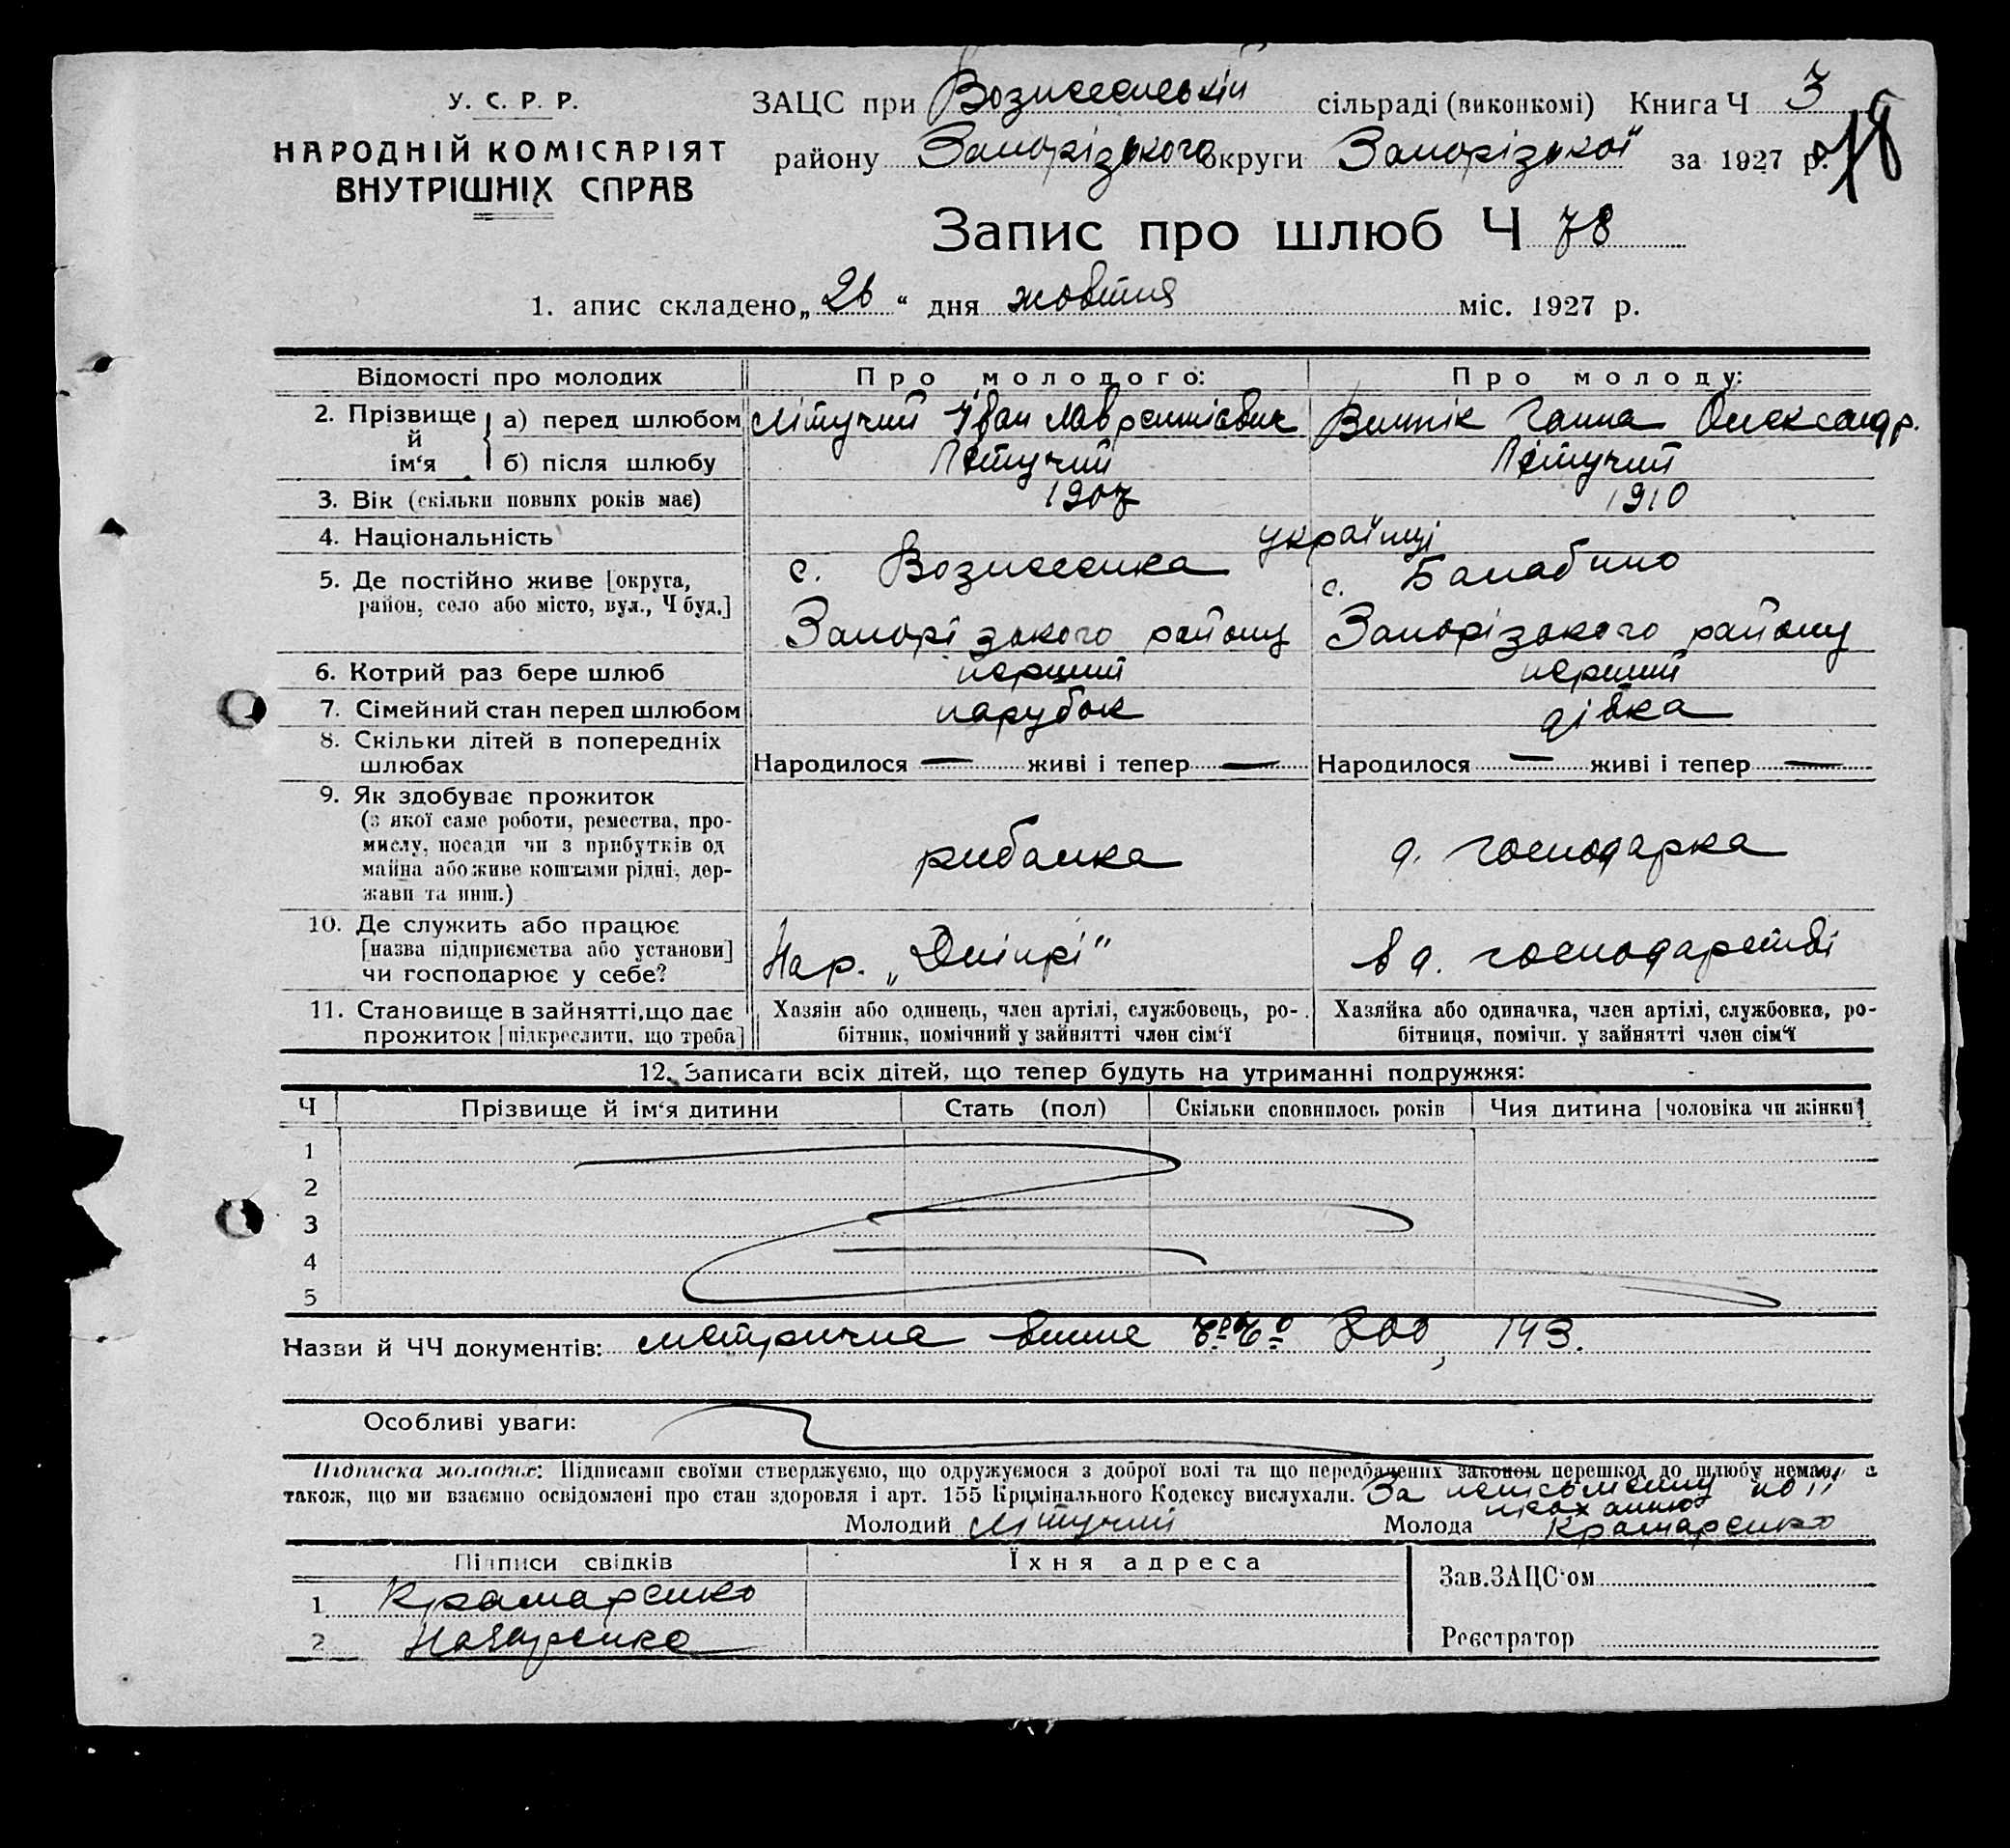 У. С. Р. Р.
НАРОДНІЙ КОМІСАРІЯТ
ВНУТРІШНІХ СПРАВ
ЗАЦС при Вознесенській сільраді (виконкомі) Книга Ч 3
району Запорізького округи Запорізької за 1927 р. 78
Запис про шлюб Ч 78
1. апис складено „26“ дня жовтня міс. 1927 р.
Відомості про молодих Про молодого: Про молоду:
2. Прізвище й ім‘я а) перед шлюбом Літучий Іван Лаврентієвич Винník Ганна Олександр.
б) після шлюбу Літучий Літучий
3. Вік (скільки повних років має) 1907 1910
4. Національність українці
5. Де постійно живе [округа, район, село або місто, вул., Ч буд.] с. Вознесенка с. Балабино
Запорізького району Запорізького району
6. Котрий раз бере шлюб перший перший
7. Сімейний стан перед шлюбом парубок дівка
8. Скільки дітей в попередніх шлюбах Народилося — живі і тепер — Народилося — живі і тепер —
9. Як здобуває прожиток
(з якої саме роботи, ремества, про-
мислу, посади чи з прибутків од
майна або живе коштами рідні, дер-
жави та инш.)
рибалка д. господарка
10. Де служить або працює
[назва підприємства або установи]
чи господарює у себе?
На р. „Дніпрі“ в д. господарстві
11. Становище в зайнятті, що дає
прожиток [підкреслити, що треба]
Хазяїн або одинець, член артілі, службовець, ро-
бітник, помічний у зайнятті член сім‘ї
Хазяйка або одиначка, член артілі, службовка, ро-
бітниця, помічн. у зайнятті член сім‘ї
12. Записати всіх дітей, що тепер будуть на утриманні подружжя:
Ч Прізвище й ім‘я дитини Стать (пол) Скільки сповнилось років Чия дитина [чоловіка чи жінки]
1
2
3
4
5
Назви й ЧЧ документів: метрична 800, 143.
Особливі уваги:
Підписка молодих: Підписами своїми стверджуємо, що одружуємося з доброї волі та що передбачених законом перешкод до шлюбу немає, а
також, що ми взаємно освідомлені про стан здоровля і арт. 155 Крцмінального Кодексу вислухали. За неписьменну по її
проханню
Молодий Літучий Молода Крамаренко
Підписи свідків Їхня адреса
1 Крамаренко
2 Назаренко
Зав. ЗАЦС‘ом
Реєстратор